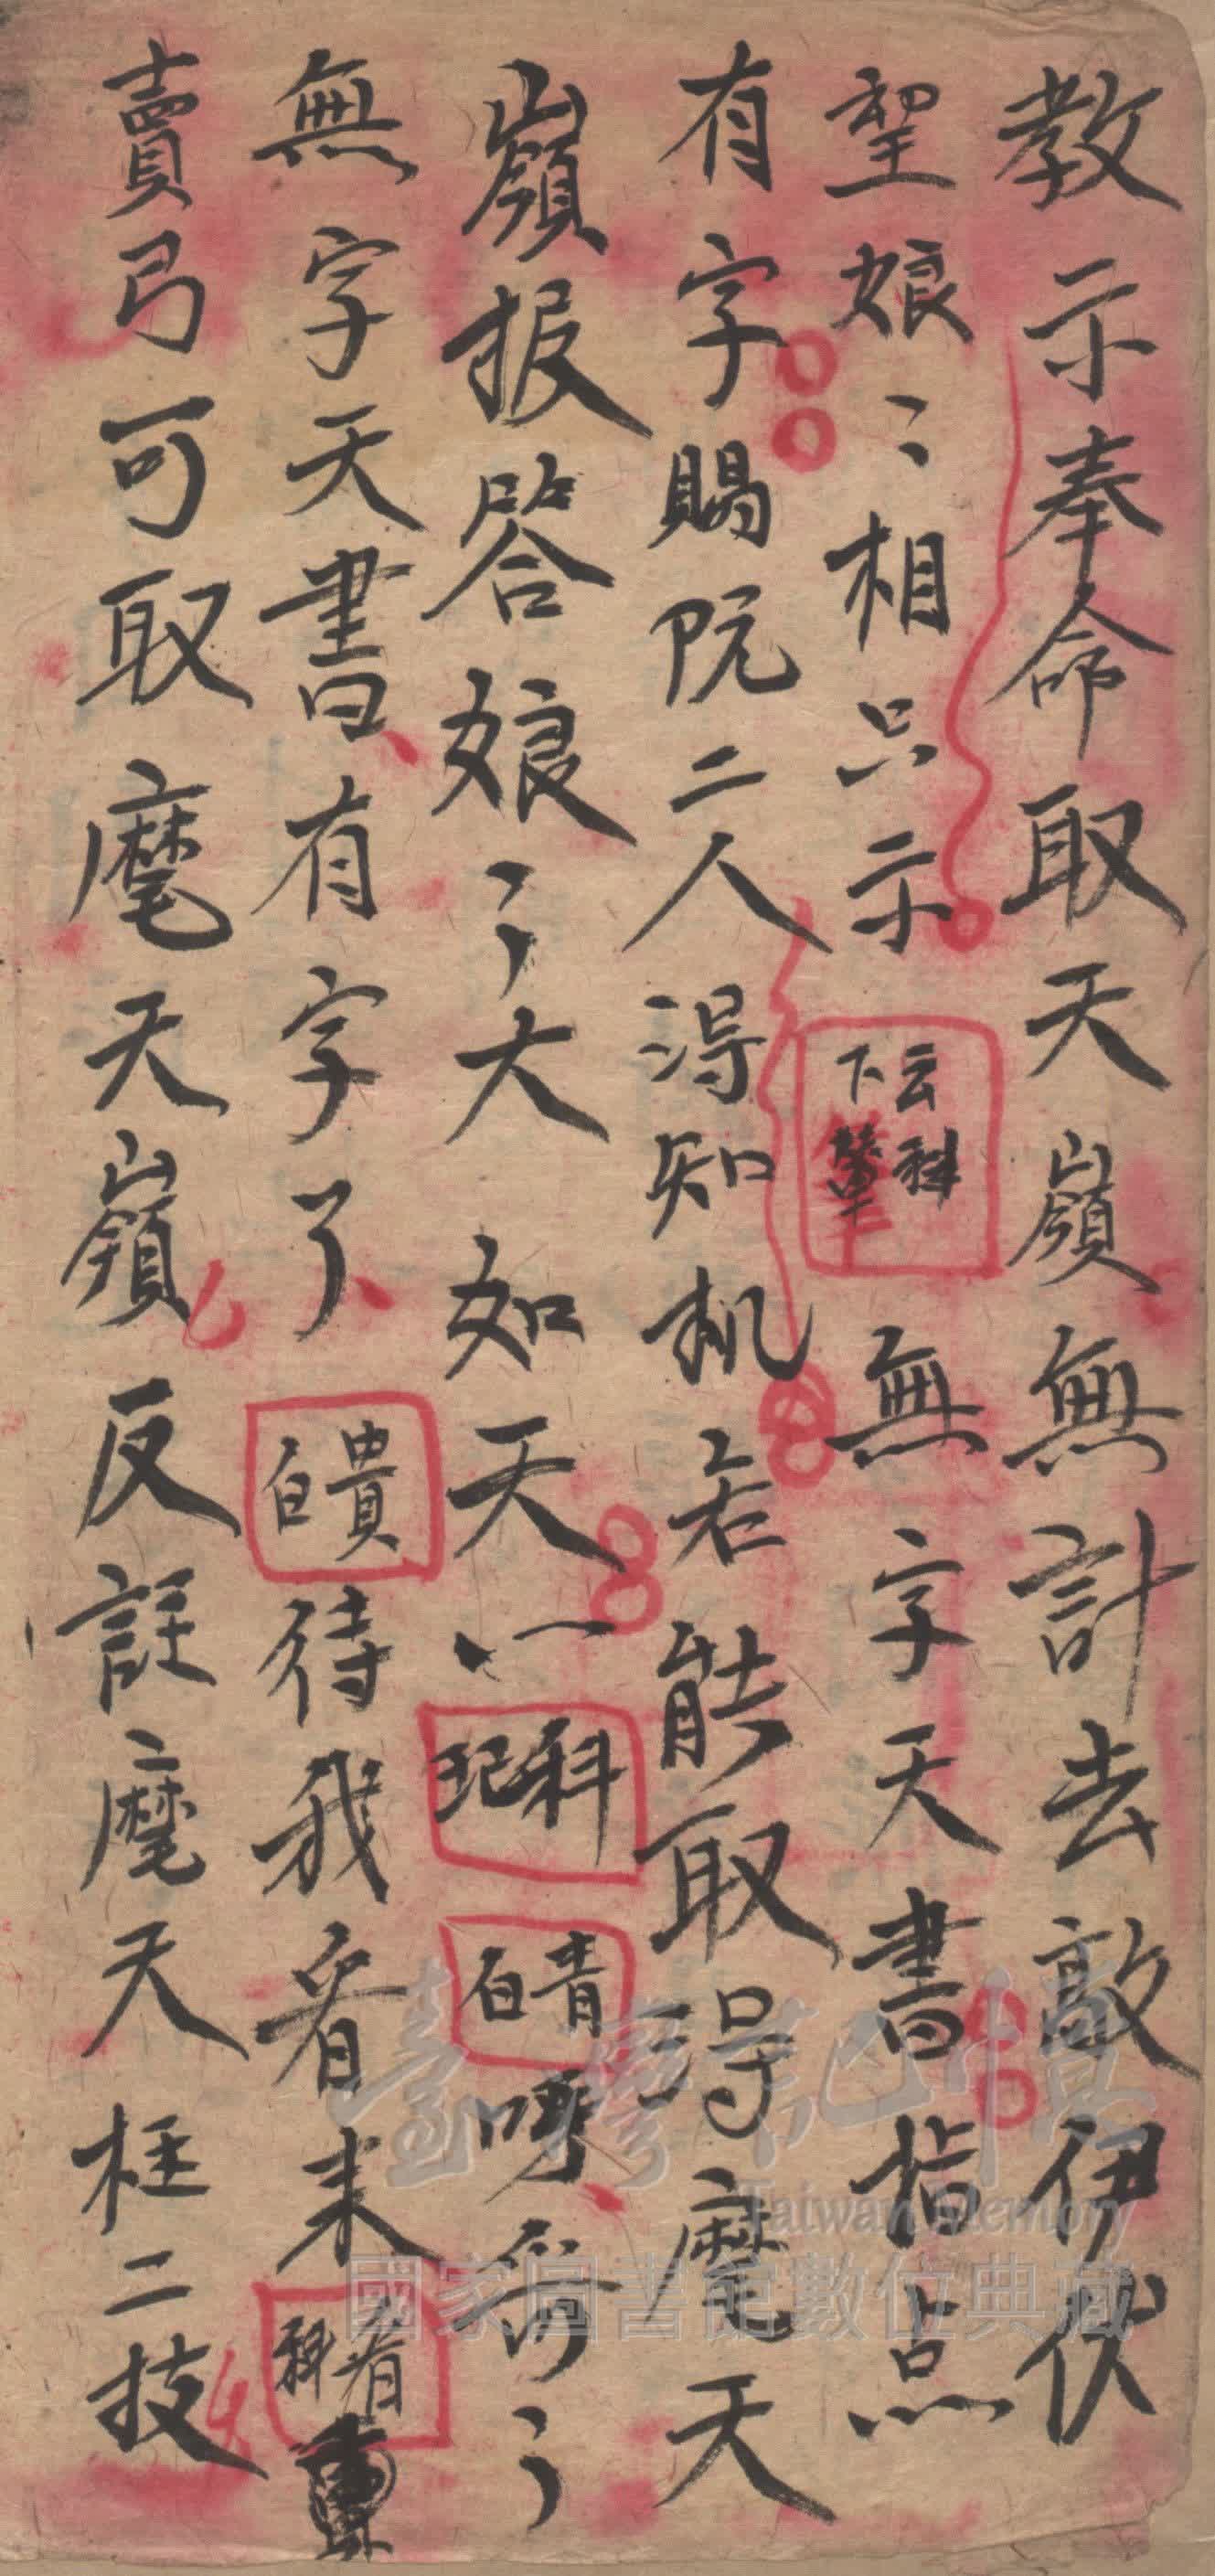 教示奉命取天嶺無計去敵伊伏
望娘〻相只示
云科
下筆
無字天書指点
有字賜阮二人得知机若能取得麾天
嶺报答娘〻大如天
科
白青
呼哥〻
無字天書有字了
白貴
待我看来
看
科
賣弓可取麾天嶺反註麾天柱二技
臺灣記憶
Taiwan Memory
國家圖書館數位典藏